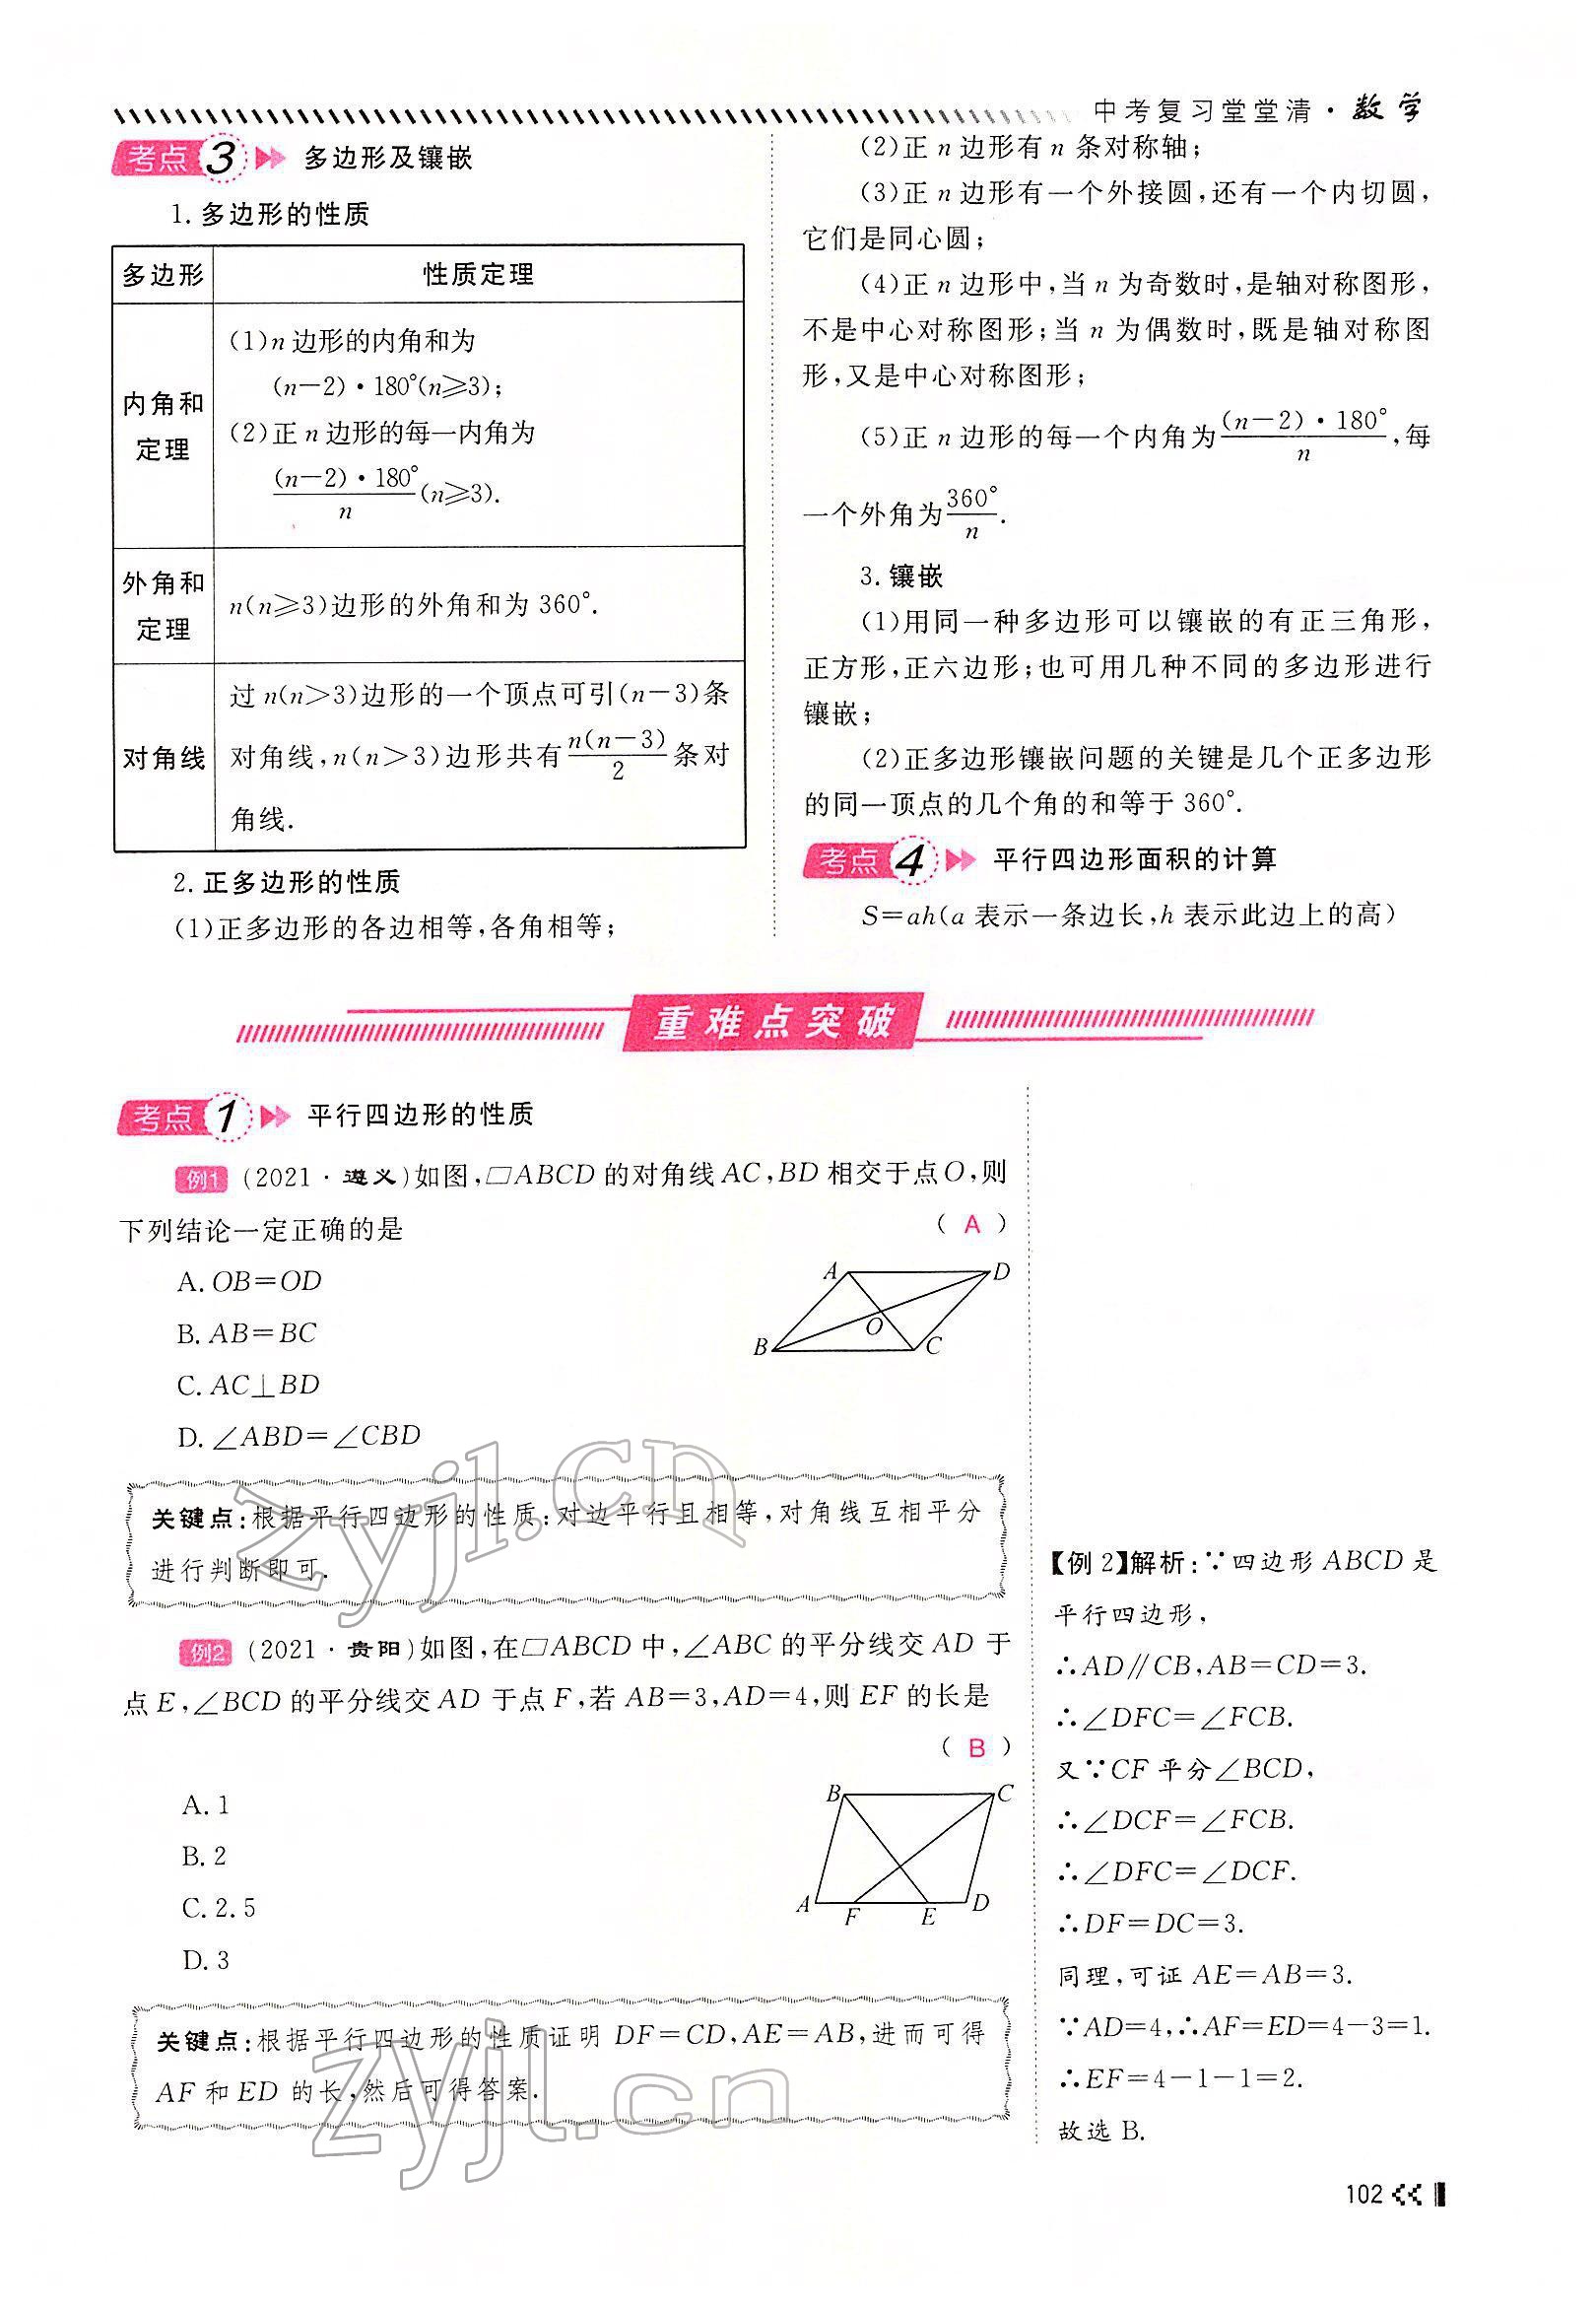 中考复习堂堂清·数学
考点3 多边形及镶嵌
1. 多边形的性质
多边形 性质定理
内角和定理
(1)n边形的内角和为
(n-2)·180°(n≥3);
(2)正n边形的每一内角为
(n-2)·180°/n (n≥3).
外角和定理
n(n≥3)边形的外角和为360°.
对角线
过n(n>3)边形的一个顶点可引(n-3)条
对角线,n(n>3)边形共有n(n-3)/2条对
角线.
2. 正多边形的性质
(1)正多边形的各边相等,各角相等;
(2)正n边形有n条对称轴;
(3)正n边形有一个外接圆,还有一个内切圆,
它们是同心圆;
(4)正n边形中,当n为奇数时,是轴对称图形,
不是中心对称图形;当n为偶数时,既是轴对称图
形,又是中心对称图形;
(5)正n边形的每一个内角为(n-2)·180°/n,每
一个外角为360°/n.
3. 镶嵌
(1)用同一种多边形可以镶嵌的有正三角形,
正方形,正六边形;也可用几种不同的多边形进行
镶嵌;
(2)正多边形镶嵌问题的关键是几个正多边形
的同一顶点的几个角的和等于360°.
考点4 平行四边形面积的计算
S=ah(a表示一条边长,h表示此边上的高)
重难点突破
考点1 平行四边形的性质
例1 (2021·遵义)如图,▱ABCD的对角线AC,BD相交于点O,则
下列结论一定正确的是 ( A )
A. OB=OD
B. AB=BC
C. AC⊥BD
D. ∠ABD=∠CBD
A D
O
B C
关键点:根据平行四边形的性质:对边平行且相等,对角线互相平分
进行判断即可.
例2 (2021·贵阳)如图,在▱ABCD中,∠ABC的平分线交AD于
点E,∠BCD的平分线交AD于点F,若AB=3,AD=4,则EF的长是
( B )
A. 1
B. 2
C. 2.5
D. 3
B C
A F E D
关键点:根据平行四边形的性质证明DF=CD,AE=AB,进而可得
AF和ED的长,然后可得答案.
【例2】解析:∵四边形ABCD是
平行四边形,
∴AD∥CB,AB=CD=3.
∴∠DFC=∠FCB.
又∵CF平分∠BCD,
∴∠DCF=∠FCB.
∴∠DFC=∠DCF.
∴DF=DC=3.
同理,可证AE=AB=3.
∵AD=4,∴AF=ED=4-3=1.
∴EF=4-1-1=2.
故选B.
zyjl.cn
zyjl.cn
102